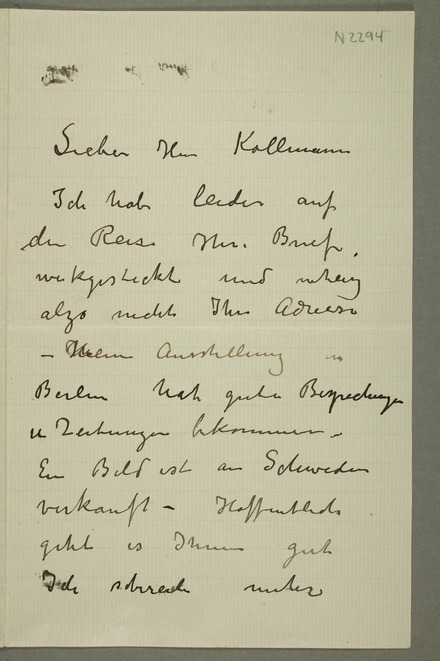 N2294
Lieber Herr Kollmann
Ich habe leider auf
der Reise Ihre Briefe,
und
also nicht Ihre Adresse
– Meine Ausstellung in
Berlin hat gute Besprechungen
Zeitungen bekommen –
Ein Bild ist an Schweden
verkauft – Hoffentlich
geht es Ihnen gut
Ich schreibe